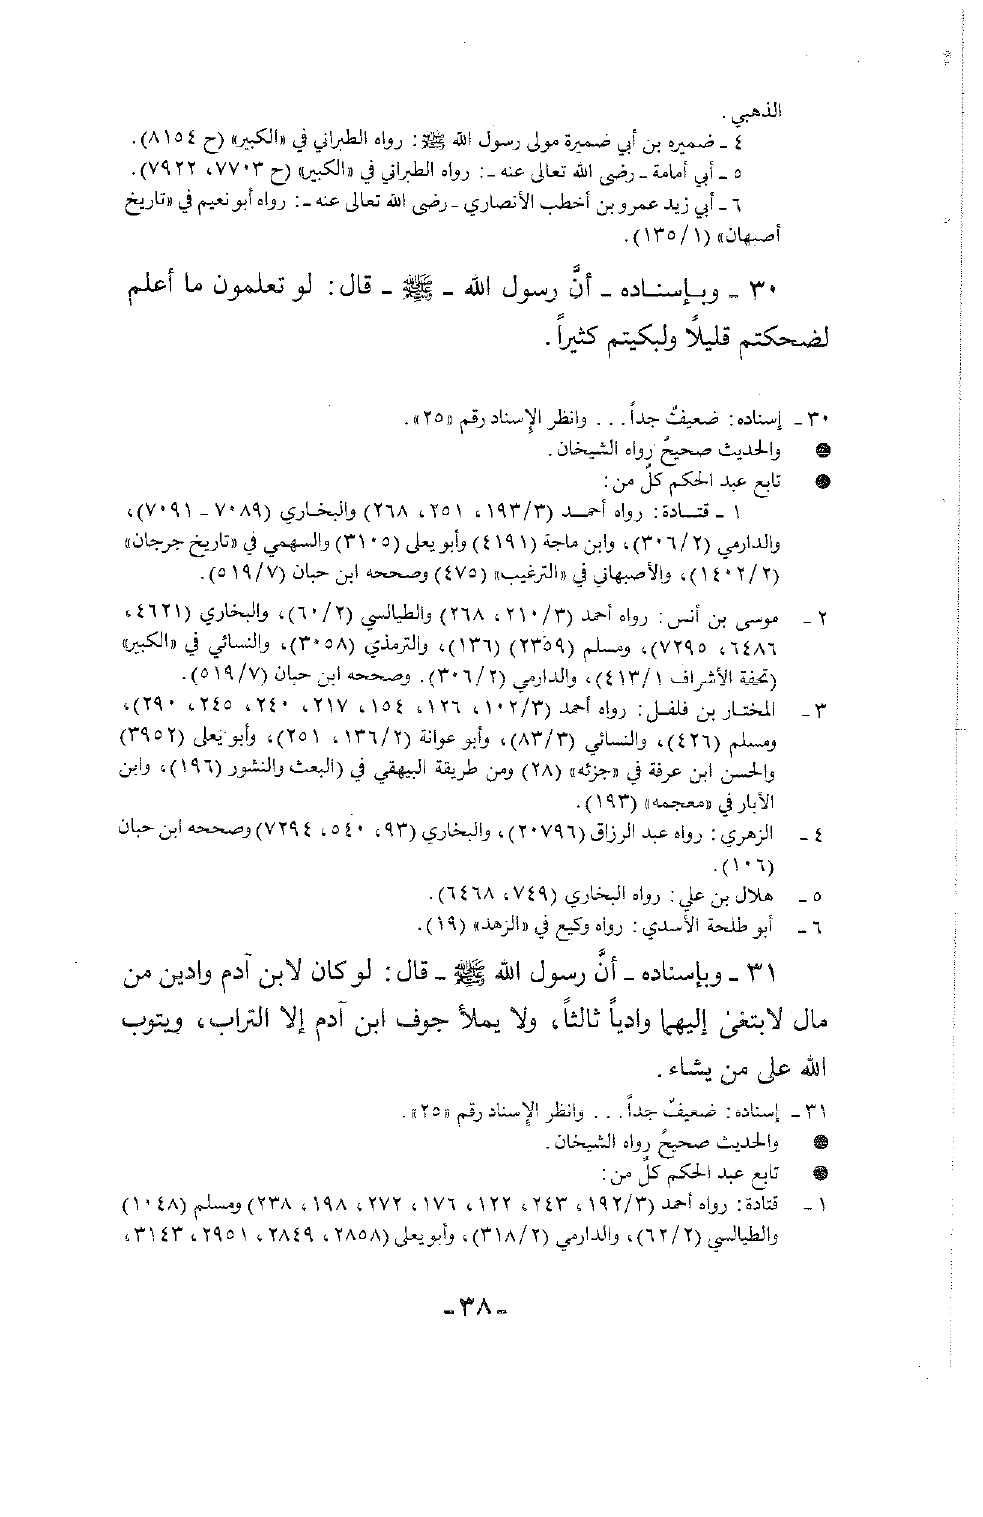 الذهبي .
٤ ـ ضميره بن أبي ضميرة مولى رسول الله ﷺ: رواه الطبراني في «الكبير» (ح ٨١٥٤).
٥ ـ أبي أمامة ـ رضى الله تعالى عنه ـ: رواه الطبراني في «الكبير» (ح ٧٧٠٣، ٧٩٢٢).
٦ ـ أبي زيد عمرو بن أخطب الأنصاري ـ رضى الله تعالى عنه ـ: رواه أبو نعيم في «تاريخ
أصبهان» (١/ ١٣٥).
٣٠ ـ وبإسناده ـ أنَّ رسول الله ـ ﷺ ـ قال: لو تعلمون ما أعلم
لضحكتم قليلاً ولبكيتم كثيراً.
٣٠ ـ إسناده: ضعيفٌ جداً... وانظر الإسناد رقم «٢٥».
● والحديث صحيحٌ رواه الشيخان.
● تابع عبد الحكم كلٌ من:
١ ـ قتادة: رواه أحمد (٣/ ١٩٣، ٢٥١، ٢٦٨) والبخاري (٧٠٨٩ ـ ٧٠٩١)،
والدارمي (٢/ ٣٠٦)، وابن ماجة (٤١٩١) وأبو يعلى (٣١٠٥) والسهمي في «تاريخ جرجان»
(١٤٠٢/٢)، والأصبهاني في «الترغيب» (٤٧٥) وصححه ابن حبان (٧/ ٥١٩).
٢ ـ موسى بن أنس: رواه أحمد (٣/ ٢١٠، ٢٦٨) والطيالسي (٢/ ٦٠)، والبخاري (٤٦٢١،
٦٤٨٦، ٧٢٩٥)، ومسلم (٢٣٥٩) (١٣٦)، والترمذي (٣٠٥٨)، والنسائي في «الكبير»
(تحفة الأشراف ١/ ٤١٣)، والدارمي (٢/ ٣٠٦). وصححه ابن حبان (٧/ ٥١٩).
٣ ـ المختار بن فلفل: رواه أحمد (٣/ ١٠٢، ١٢٦، ١٥٤، ٢١٧، ٢٤٠، ٢٤٥، ٢٩٠)،
ومسلم (٤٢٦)، والنسائي (٣/ ٨٣)، وأبو عوانة (٢/ ١٣٦، ٢٥١)، وأبو يعلى (٣٩٥٢)
والحسن ابن عرفة في «جزئه» (٢٨) ومن طريقة البيهقي في (البعث والنشور (١٩٦)، وابن
الأبار في «معجمه» (١٩٣).
٤ ـ الزهري: رواه عبد الرزاق (٢٠٧٩٦)، والبخاري (٩٣، ٥٤٠، ٧٢٩٤) وصححه ابن حبان
(١٠٦).
٥ ـ هلال بن علي: رواه البخاري (٧٤٩، ٦٤٦٨).
٦ ـ أبو طلحة الأسدي: رواه وكيع في «الزهد» (١٩).
٣١ ـ وبإسناده ـ أنَّ رسول الله ﷺ ـ قال: لو كان لابن آدم وادين من
مال لابتغىٰ إليهما وادياً ثالثاً، ولا يملأ جوف ابن آدم إلا التراب، ويتوب
الله على من يشاء.
٣١ ـ إسناده: ضعيفٌ جداً... وانظر الإسناد رقم «٢٥».
● والحديث صحيحٌ رواه الشيخان.
● تابع عبد الحكم كلٌ من:
١ ـ قتادة: رواه أحمد (٣/ ١٩٢، ٢٤٣، ١٢٢، ١٧٦، ٢٧٢، ١٩٨، ٢٣٨) ومسلم (١٠٤٨)
والطيالسي (٢/ ٦٢)، والدارمي (٢/ ٣١٨)، وأبو يعلى (٢٨٥٨، ٢٨٤٩، ٢٩٥١، ٣١٤٣،
ـ ٣٨ ـ